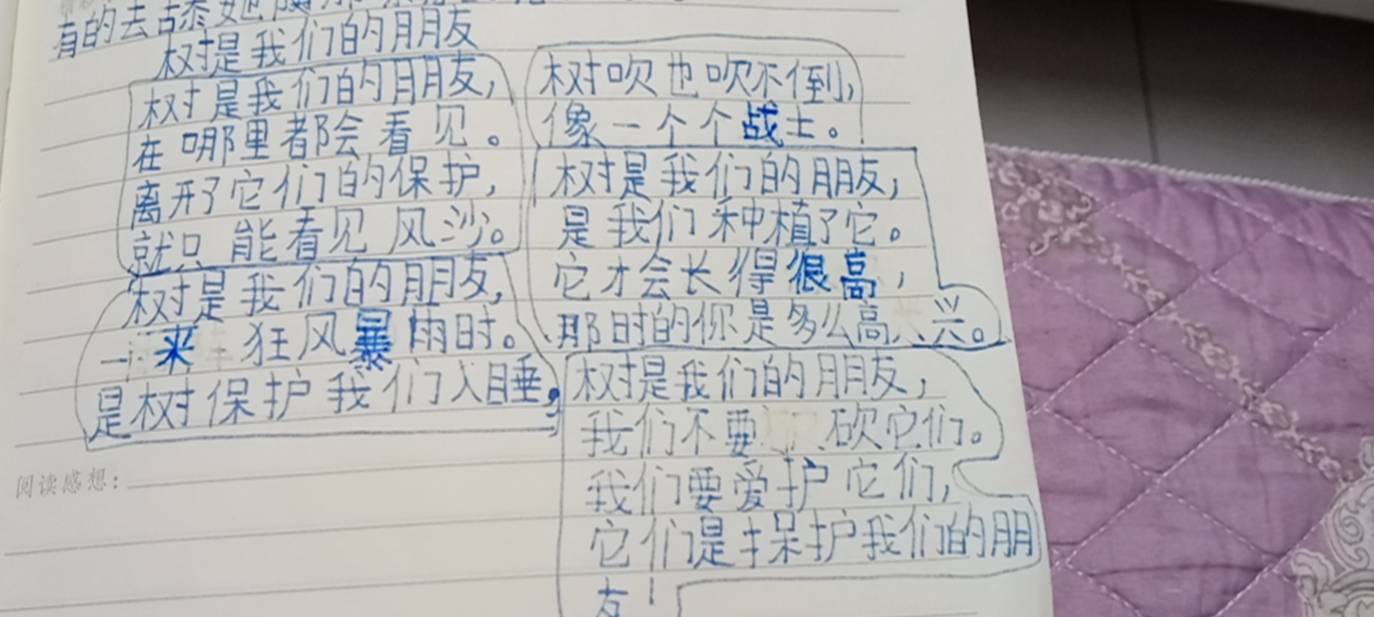 树是我们的朋友
树是我们的朋友,
在哪里都会看见。
离开了它们的保护,
就只能看见风沙。
树是我们的朋友,
一来狂风暴雨时。
是树保护我们入睡,
树吹也吹不倒,
像一个个战士。
树是我们的朋友,
是我们种植了它。
它才会长得很高,
那时的你是多么高兴。
树是我们的朋友,
我们不要砍它们。
我们要爱护它们,
它们是保护我们的朋
友!
阅读感想: